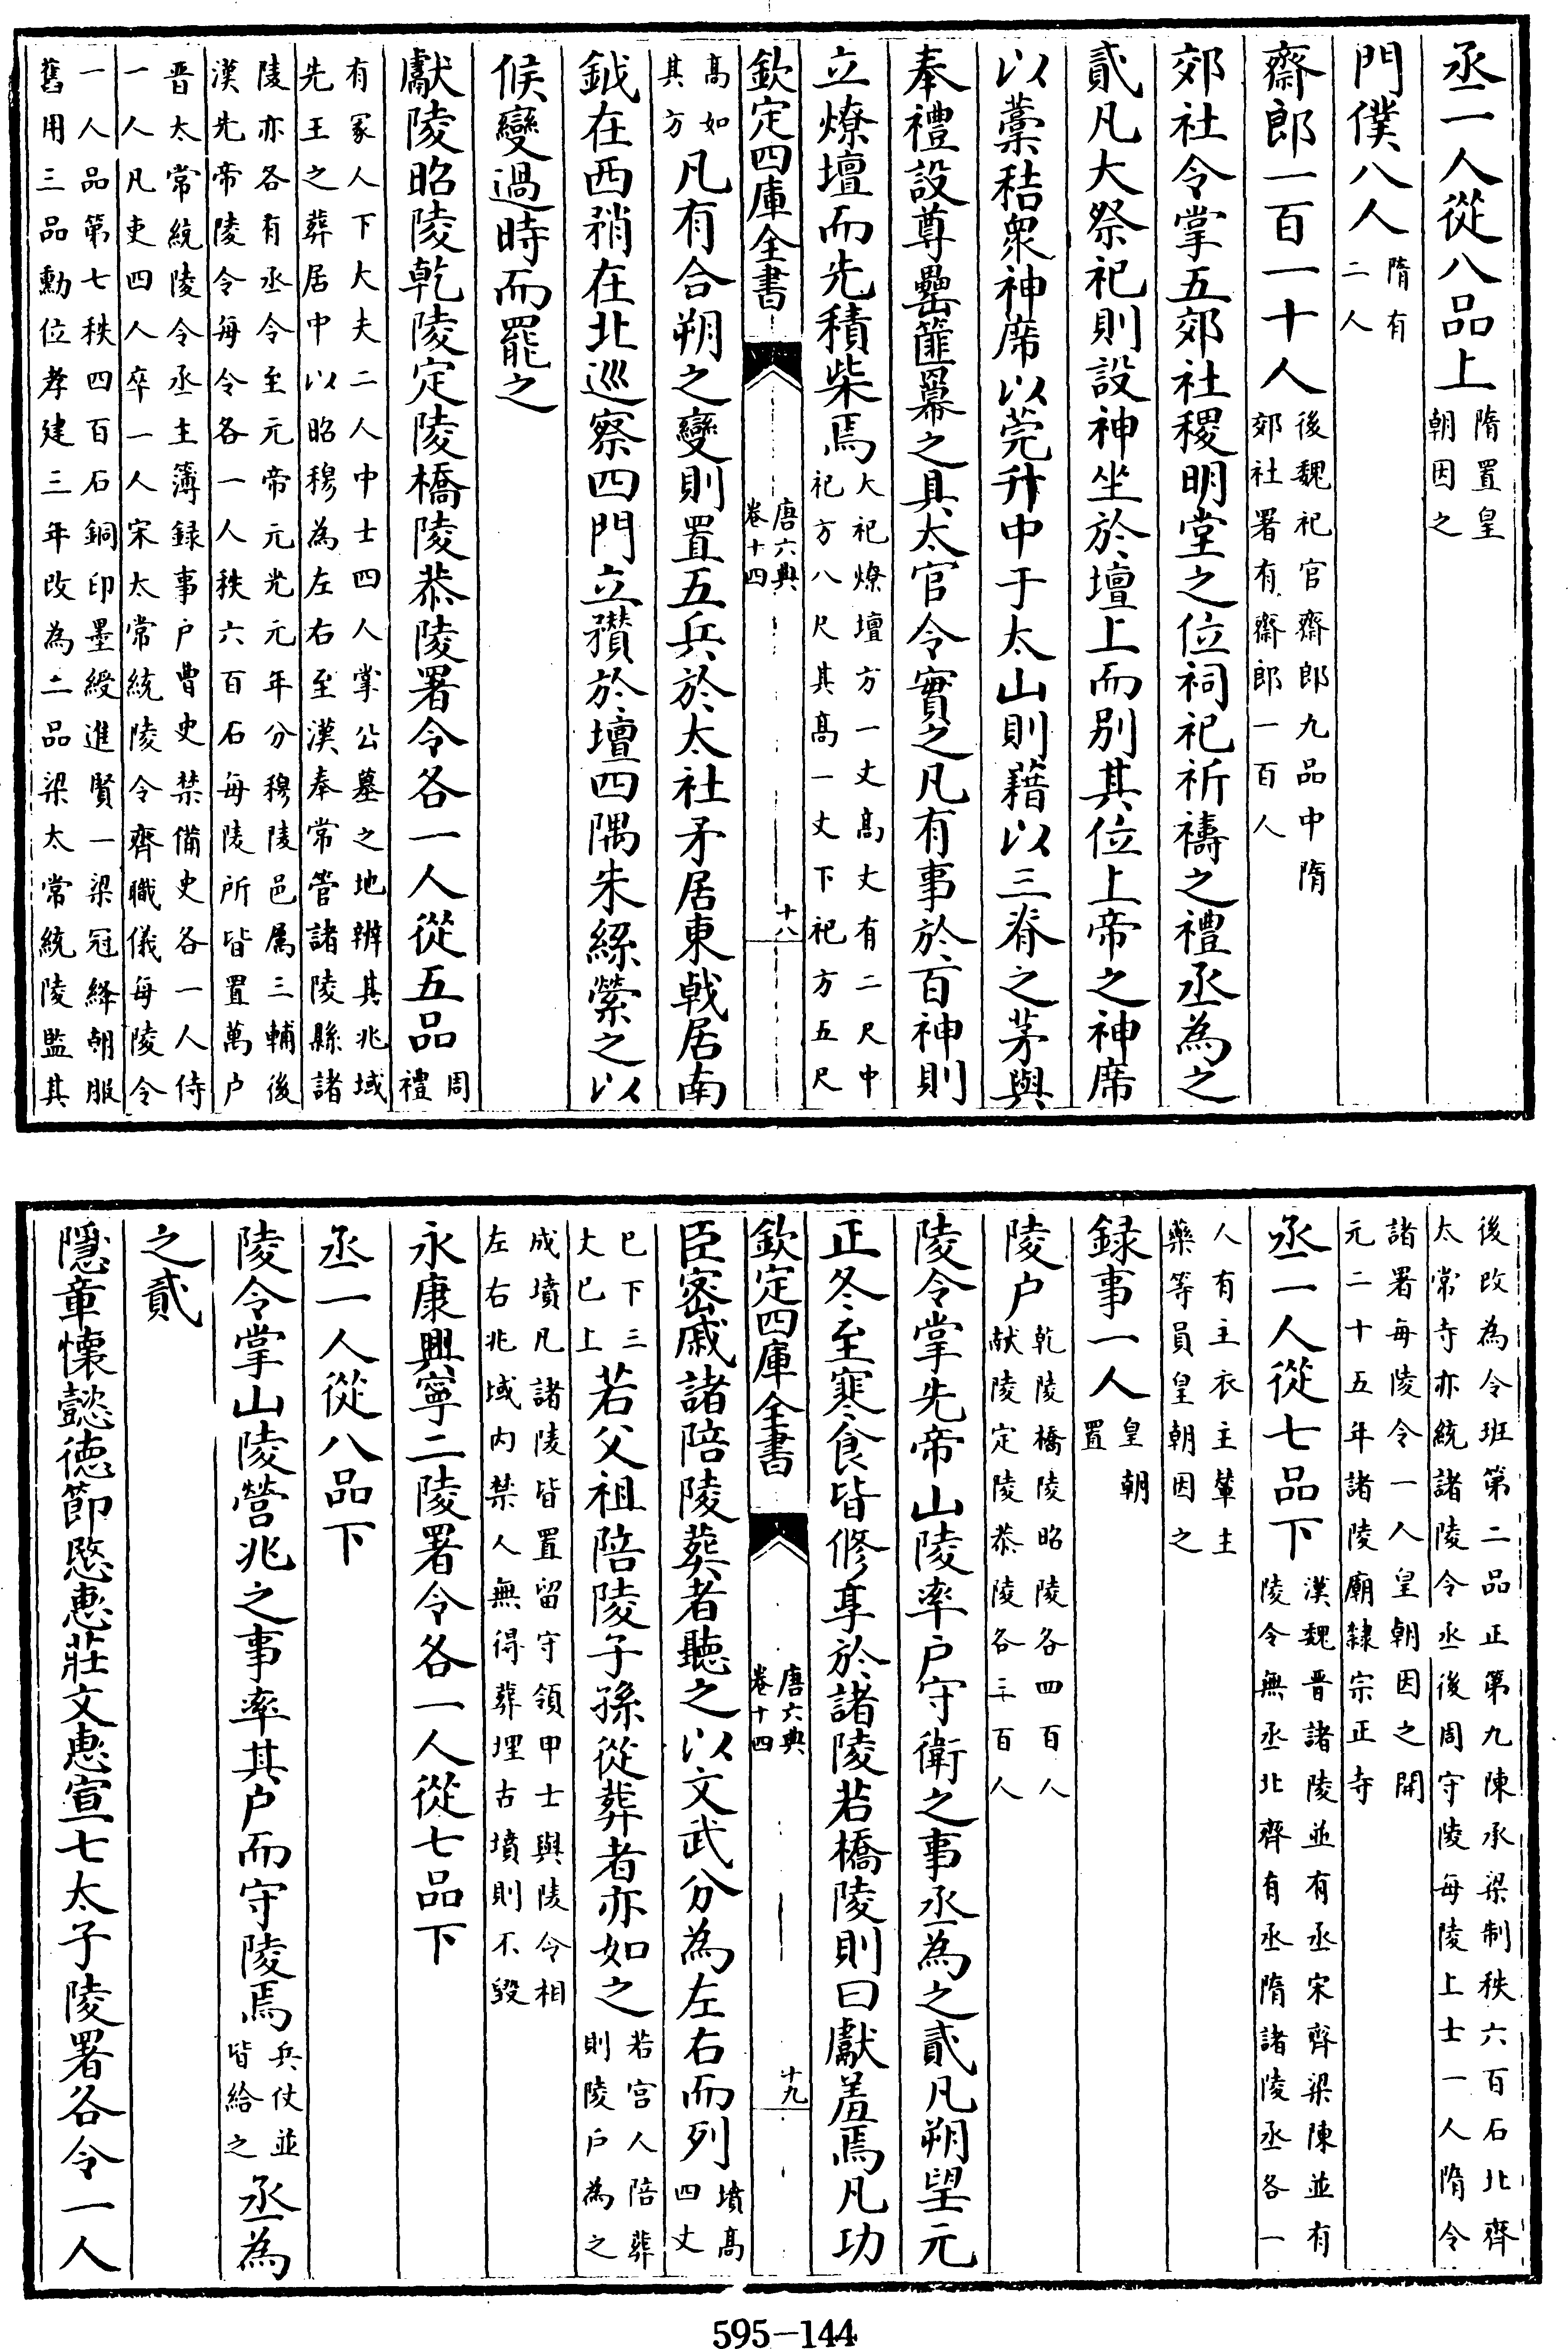 丞一人從八品上隋置皇朝因之
門僕八人隋有二人
齋郎一百一十人後魏祀官齋郎九品中隋郊社署有齋郎一百人
郊社令掌五郊社稷明堂之位祠祀祈禱之禮丞為之
貳凡大祭祀則設神坐於壇上而别其位上帝之神席
以藁秸衆神席以莞升中于太山則藉以三脊之茅與
奉禮設尊罍篚羃之具太官令實之凡有事於百神則
立燎壇而先積柴焉大祀燎壇方一丈高丈有二尺中祀方八尺其高一丈下祀方五尺
欽定四庫全書 唐六典卷十四 十八
高如其方凡有合朔之變則置五兵於太社矛居東戟居南
鉞在西稍在北巡察四門立穳於壇四隅朱絲縈之以
候變過時而罷之
獻陵昭陵乾陵定陵橋陵恭陵署令各一人從五品周禮
有冢人下大夫二人中士四人掌公墓之地辨其兆域先王之葬居中以昭穆為左右至漢奉常管諸陵縣諸
陵亦各有丞令至元帝元光元年分穆陵邑屬三輔後漢先帝陵令每令各一人秩六百石每陵所皆置萬户
晉太常統陵令丞主簿録事户曹史禁備史各一人侍一人凡吏四人卒一人宋太常統陵令齊職儀每陵令
一人品第七秩四百石銅印墨綬進賢一梁冠絳朝服舊用三品勳位孝建三年改為二品梁太常統陵監其
後改為令班第二品正第九陳承梁制秩六百石北齊太常寺亦統諸陵令丞後周守陵每陵上士一人隋令
諸署每陵令一人皇朝因之開元二十五年諸陵廟隸宗正寺
丞一人從七品下漢魏晉諸陵並有丞宋齊梁陳並有陵令無丞北齊有丞隋諸陵丞各一
人有主衣主輦主藥等員皇朝因之
録事一人皇朝置
陵户乾陵橋陵昭陵各四百人献陵定陵恭陵各三百人
陵令掌先帝山陵率户守衛之事丞為之貳凡朔望元
正冬至寒食皆修享於諸陵若橋陵則曰獻羞焉凡功
欽定四庫全書 唐六典卷十四 十九
臣密戚諸陪陵葬者聽之以文武分為左右而列墳高四丈
已下三丈已上若父祖陪陵子孫從葬者亦如之若宫人陪葬則陵户為之
成墳凡諸陵皆置留守領甲士與陵令相左右兆域内禁人無得葬埋古墳則不毀
永康興寧二陵署令各一人從七品下
丞一人從八品下
陵令掌山陵營兆之事率其户而守陵焉兵仗並皆給之丞為
之貳
隱章懷懿德節愍惠莊文惠宣七太子陵署各令一人
595-144